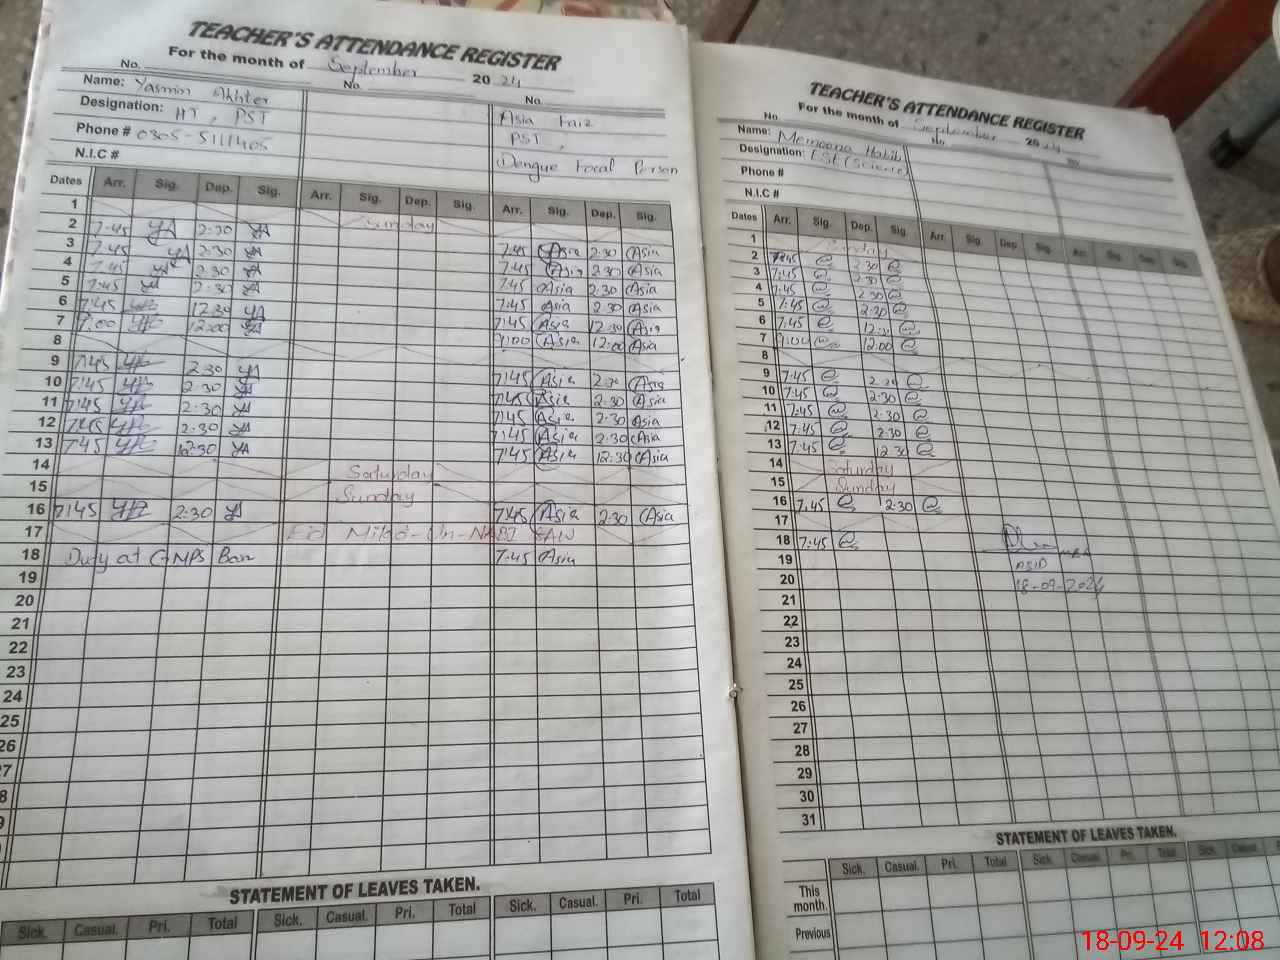 TEACHER'S ATTENDANCE REGISTER
For the month of September 2024
No. No. No.
Name: Yasmin Akhter
Designation: HT, PST
Phone # 0305-5111405
N.I.C #
Asia Faiz
PST,
Dengue Focal Person
Dates Arr. Sig. Dep. Sig. Arr. Sig. Dep. Sig. Arr. Sig. Dep. Sig.
1 Sunday
2 7:45 YA 2:30 YA 7:45 Asia 2:30 Asia
3 7:45 YA 2:30 YA 7:45 Asia 2:30 Asia
4 7:45 YA 2:30 YA 7:45 Asia 2:30 Asia
5 7:45 YA 2:30 YA 7:45 Asia 2:30 Asia
6 7:45 YA 12:30 YA 7:45 Asia 12:30 Asia
7 12:00 YA 9:00 Asia 12:00 Asia
8
9 7:45 YA 2:30 YA 7:45 Asia 2:30 Asia
10 7:45 YA 2:30 YA 7:45 Asia 2:30 Asia
11 7:45 YA 2:30 YA 7:45 Asia 2:30 Asia
12 7:45 YA 2:30 YA 7:45 Asia 2:30 Asia
13 7:45 YA 12:30 YA 7:45 Asia 12:30 Asia
14 Saturday
15 Sunday
16 7:45 YA 2:30 YA 7:45 Asia 2:30 Asia
17 Eid Milad-Un-NABI SAW
18 Duty at GMPS Ban 7:45 Asia
19
20
21
22
23
24
25
26
7
8
9
STATEMENT OF LEAVES TAKEN.
Sick. Casual. Pri. Total Sick. Casual. Pri. Total Sick. Casual. Pri. Total
TEACHER'S ATTENDANCE REGISTER
For the month of September 2024
No. No. No.
Name: Memoona Habib
Designation: EST (Science)
Phone #
N.I.C #
Dates Arr. Sig. Dep. Sig. Arr. Sig. Dep. Sig. Arr. Sig. Dep. Sig.
1 Sunday
2 7:45 2:30
3 7:45 2:30
4 7:45 2:30
5 7:45 2:30
6 7:45 12:30
7 9:00 12:00
8
9 7:45 2:30
10 7:45 2:30
11 7:45 2:30
12 7:45 2:30
13 7:45 12:30
14 Saturday
15 Sunday
16 7:45 2:30
17
18 7:45
19
20 18-09-2024
21
22
23
24
25
26
27
28
29
30
31
STATEMENT OF LEAVES TAKEN.
Sick. Casual. Pri. Total Sick. Casual. Pri. Total Sick. Casual
This month.
Previous
18-09-24 12:08